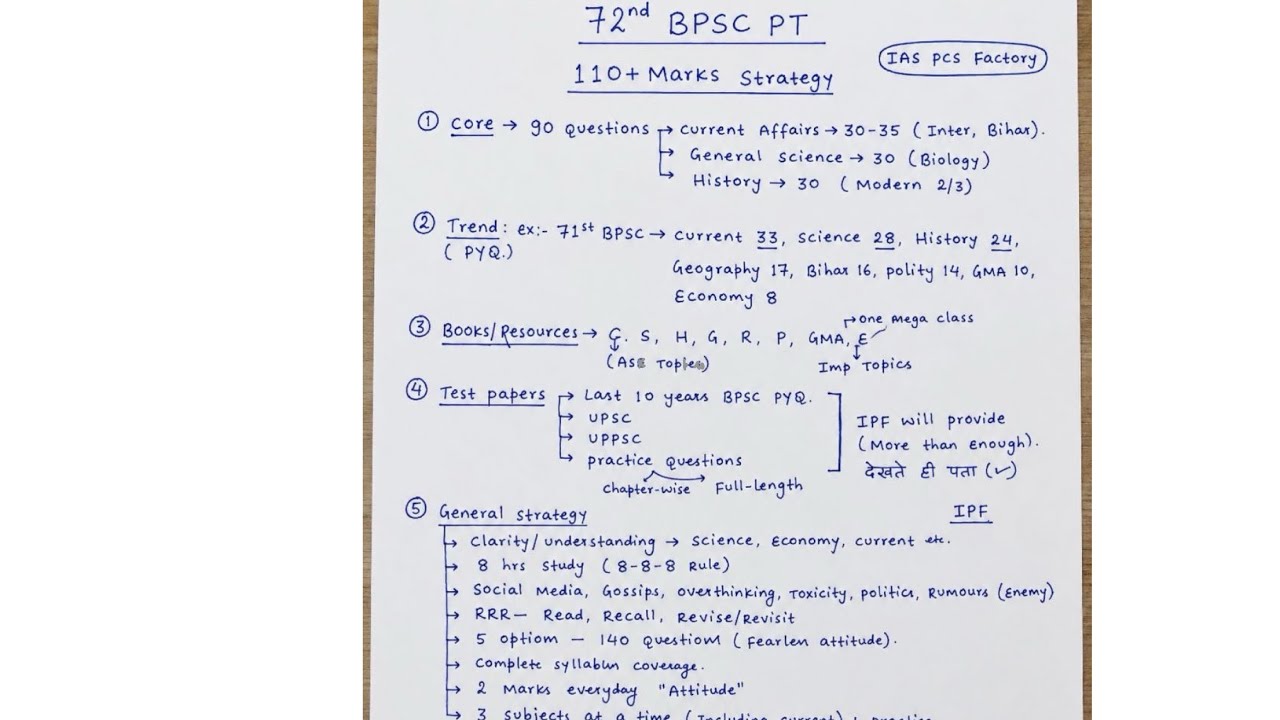 72nd BPSC PT
110+ Marks Strategy
IAS PCS Factory
① Core → 90 Questions → Current Affairs → 30-35 (Inter, Bihar).
→ General Science → 30 (Biology)
→ History → 30 (Modern 2/3)
② Trend: ex:- 71st BPSC → Current 33, Science 28, History 24,
(PYQ.)
Geography 17, Bihar 16, polity 14, GMA 10,
Economy 8
→ One Mega class
③ Books/Resources → C. S, H, G, R, P, GMA, E
(ASE Topics) Imp Topics
④ Test papers → Last 10 years BPSC PYQ.
→ UPSC
→ UPPSC
→ practice Questions
chapter-wise Full-length
IPF will provide
(More than enough).
देखते ही पता (✓)
⑤ General strategy
IPF
→ Clarity/understanding → Science, Economy, current etc.
→ 8 hrs study (8-8-8 Rule)
→ Social Media, Gossips, overthinking, Toxicity, politics, Rumours (Enemy)
→ RRR— Read, Recall, Revise/Revisit
→ 5 optiom — 140 Questiom (Fearlen attitude).
→ Complete syllabun coverage.
→ 2 Marks everyday "Attitude"
→ 3 subjects at a time (Including current) + practice